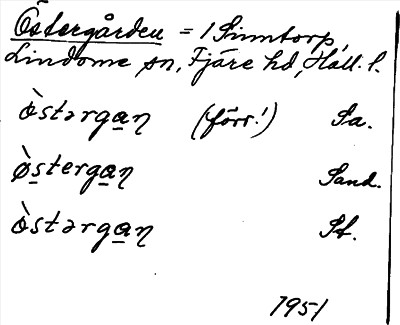 Östergården = 1 Sinntorp,
Lindome sn, Fjäre hd, Hall. l.
ò̀stərgan̥ (förr!) Sa.
ø̀stergan̥ Sand.
ò̀stərgan̥ St.
1951